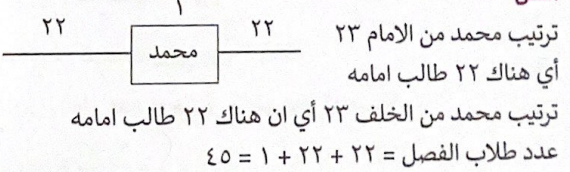 ١
٢٢ محمد ٢٢
ترتيب محمد من الامام ٢٣
أي هناك ٢٢ طالب امامه
ترتيب محمد من الخلف ٢٣ أي ان هناك ٢٢ طالب امامه
عدد طلاب الفصل = ٢٢ + ٢٢ + ١ = ٤٥